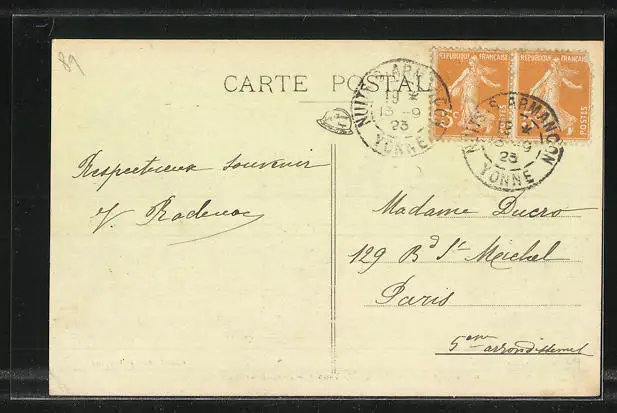 89
CARTE POSTALE
REPUBLIQUE FRANÇAISE
REPUBLIQUE FRANÇAISE
5c POSTES
POSTES
NUITS-S-ARMANÇON
19 *
13-9
23
YONNE
NUITS-S-ARMANÇON
*
13-9
23
YONNE
Respectueux souvenir
Y. Radenac
Madame Ducro
129 Bd St Meichel
Paris
5eme arrondissement